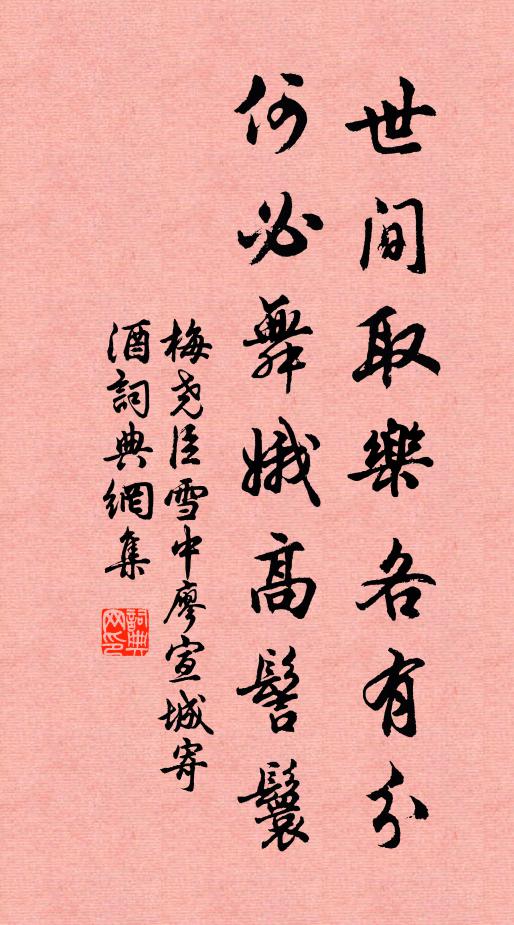 世間取樂各有分
何必舞娥高髻鬟
梅堯臣雪中廖宣城寄
酒詞典網集
詞典網印